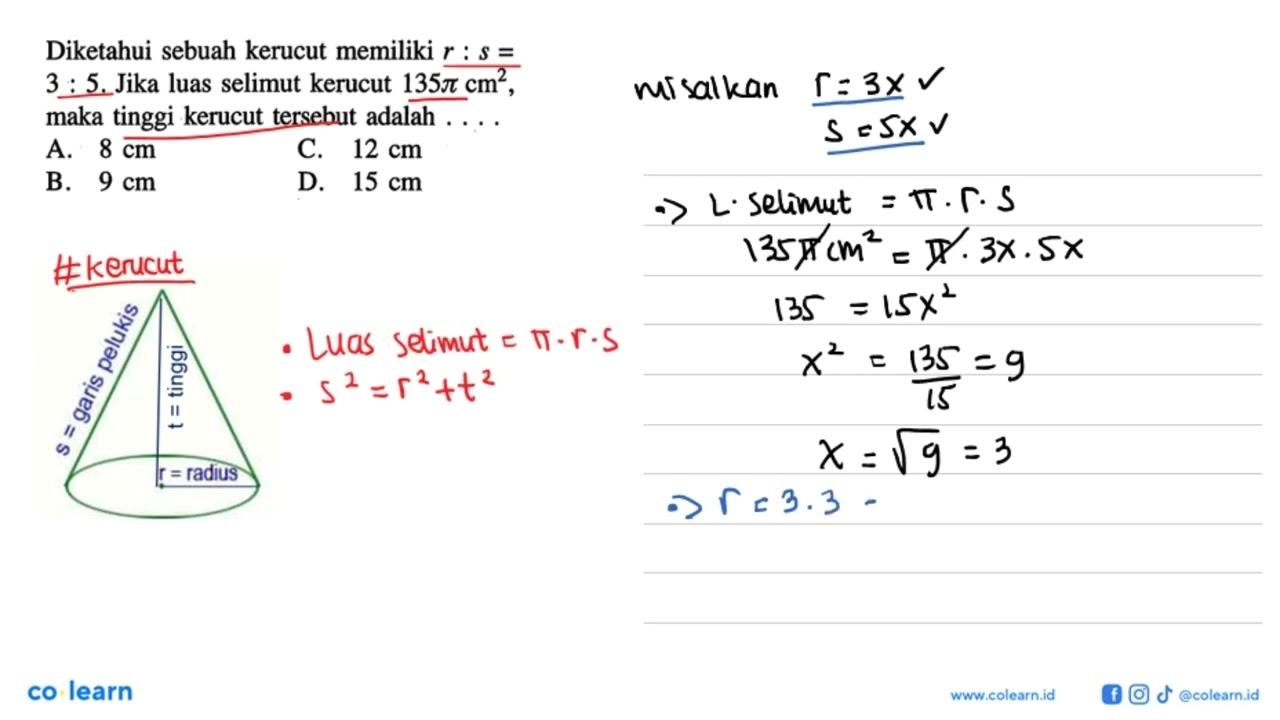 Diketahui sebuah kerucut memiliki r : s =
3 : 5. Jika luas selimut kerucut 135π cm²,
maka tinggi kerucut tersebut adalah . . . .
A. 8 cm C. 12 cm
B. 9 cm D. 15 cm
#kerucut
s = garis pelukis
t = tinggi
r = radius
• Luas selimut = π . r . s
• s² = r² + t²
misalkan r = 3x ✓
s = 5x ✓
=> L. selimut = π . r . s
135π cm² = π . 3x . 5x
135 = 15x²
x² = 135/15 = 9
x = √9 = 3
=> r = 3 . 3 -
co learn
www.colearn.id @colearn.id